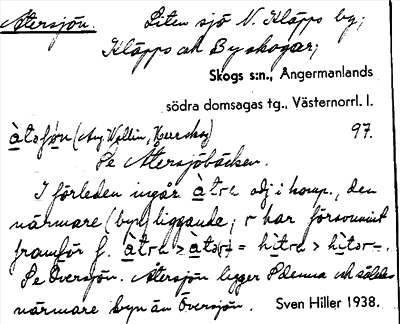 Återsjön. Liten sjö N. Kläpps by;
Kläpps och Byskogar;
Skogs s:n., Ångermanlands
södra domsagas tg., Västernorrl. l.
àtəfjø̀n (Aug. Wallin, Herrskog) 97.
Se Återsjöbäcken.
I förleden ingår àtrɛ adj. i komp., den
närmare (byn) liggande; r har försvunnit
framför f. àtrɛ > àtə(r)- = hìtrɛ > hìtər-.
Se Översjön. Återsjön ligger S denna och således
närmare byn än Översjön. Sven Hiller 1938.